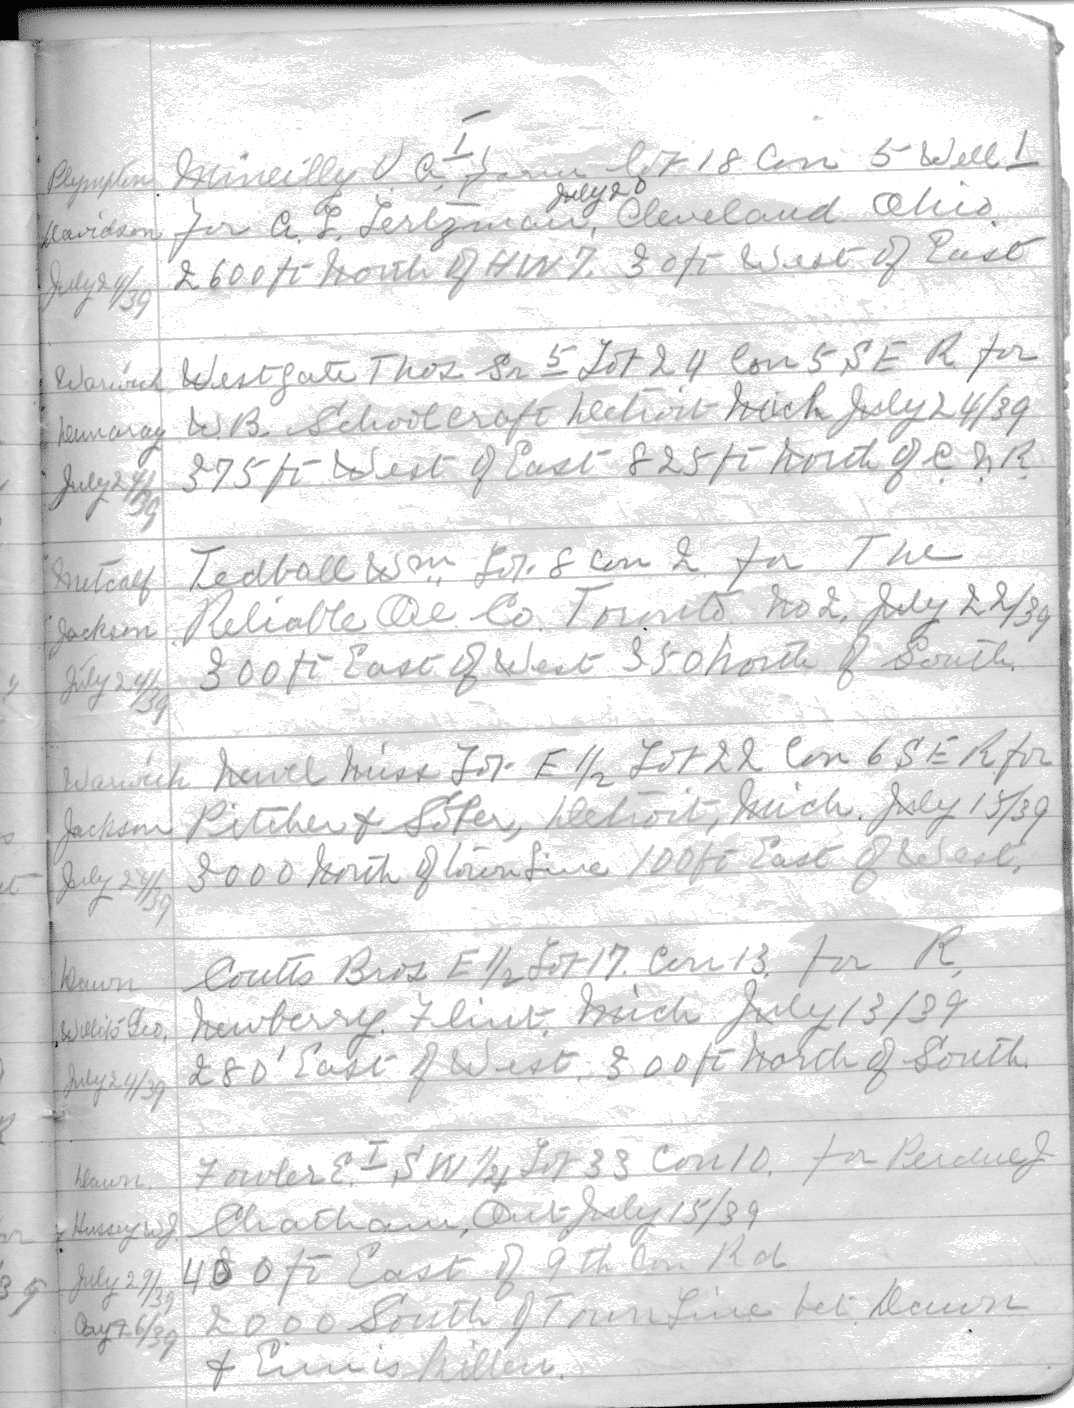 Plympton McNeilly V. C. I farm Lot 18 Con 5 Well 1
July 20
Davidson for A. L. Tertzman, Cleveland Ohio.
July 24/39 2600 ft North of HW7. 30 ft West of East
Warwick Westgate Thos Sr 5 Lot 24 Con 5 S E R for
Demaray W. B. Schoolcraft Detroit Mich July 24/39
July 24/39 375 ft West of East 825 ft North of C. N. R.
Metcalf Tedball Wm Lot 8 Con 2 for The
Jackson Reliable Oil Co. Toronto No 2. July 22/39
July 24/39 300 ft East of West 350 North of South.
Warwick Newel Miss Lot E 1/2 Lot 22 Con 6 S E R for
Jackson Pitcher & Soper, Detroit, Mich. July 15/39
July 24/39 3000 North of Town Line 100 ft East of West.
Dawn Coutts Bros E 1/2 Lot 17. Con 13. for R.
Willits Geo. Newberry. Flint. Mich July 13/39
July 24/39 280' East of West. 300 ft North of South.
Dawn. Fowler E. I S W 1/4 Lot 33 Con 10. for Perdue J
Hussey W J Chatham, Ont July 15/39
July 29/39 400 ft East of 9th Con Rd
Aug 26/39 2000 South of Town Line bet. Dawn
& Ennis Killen.